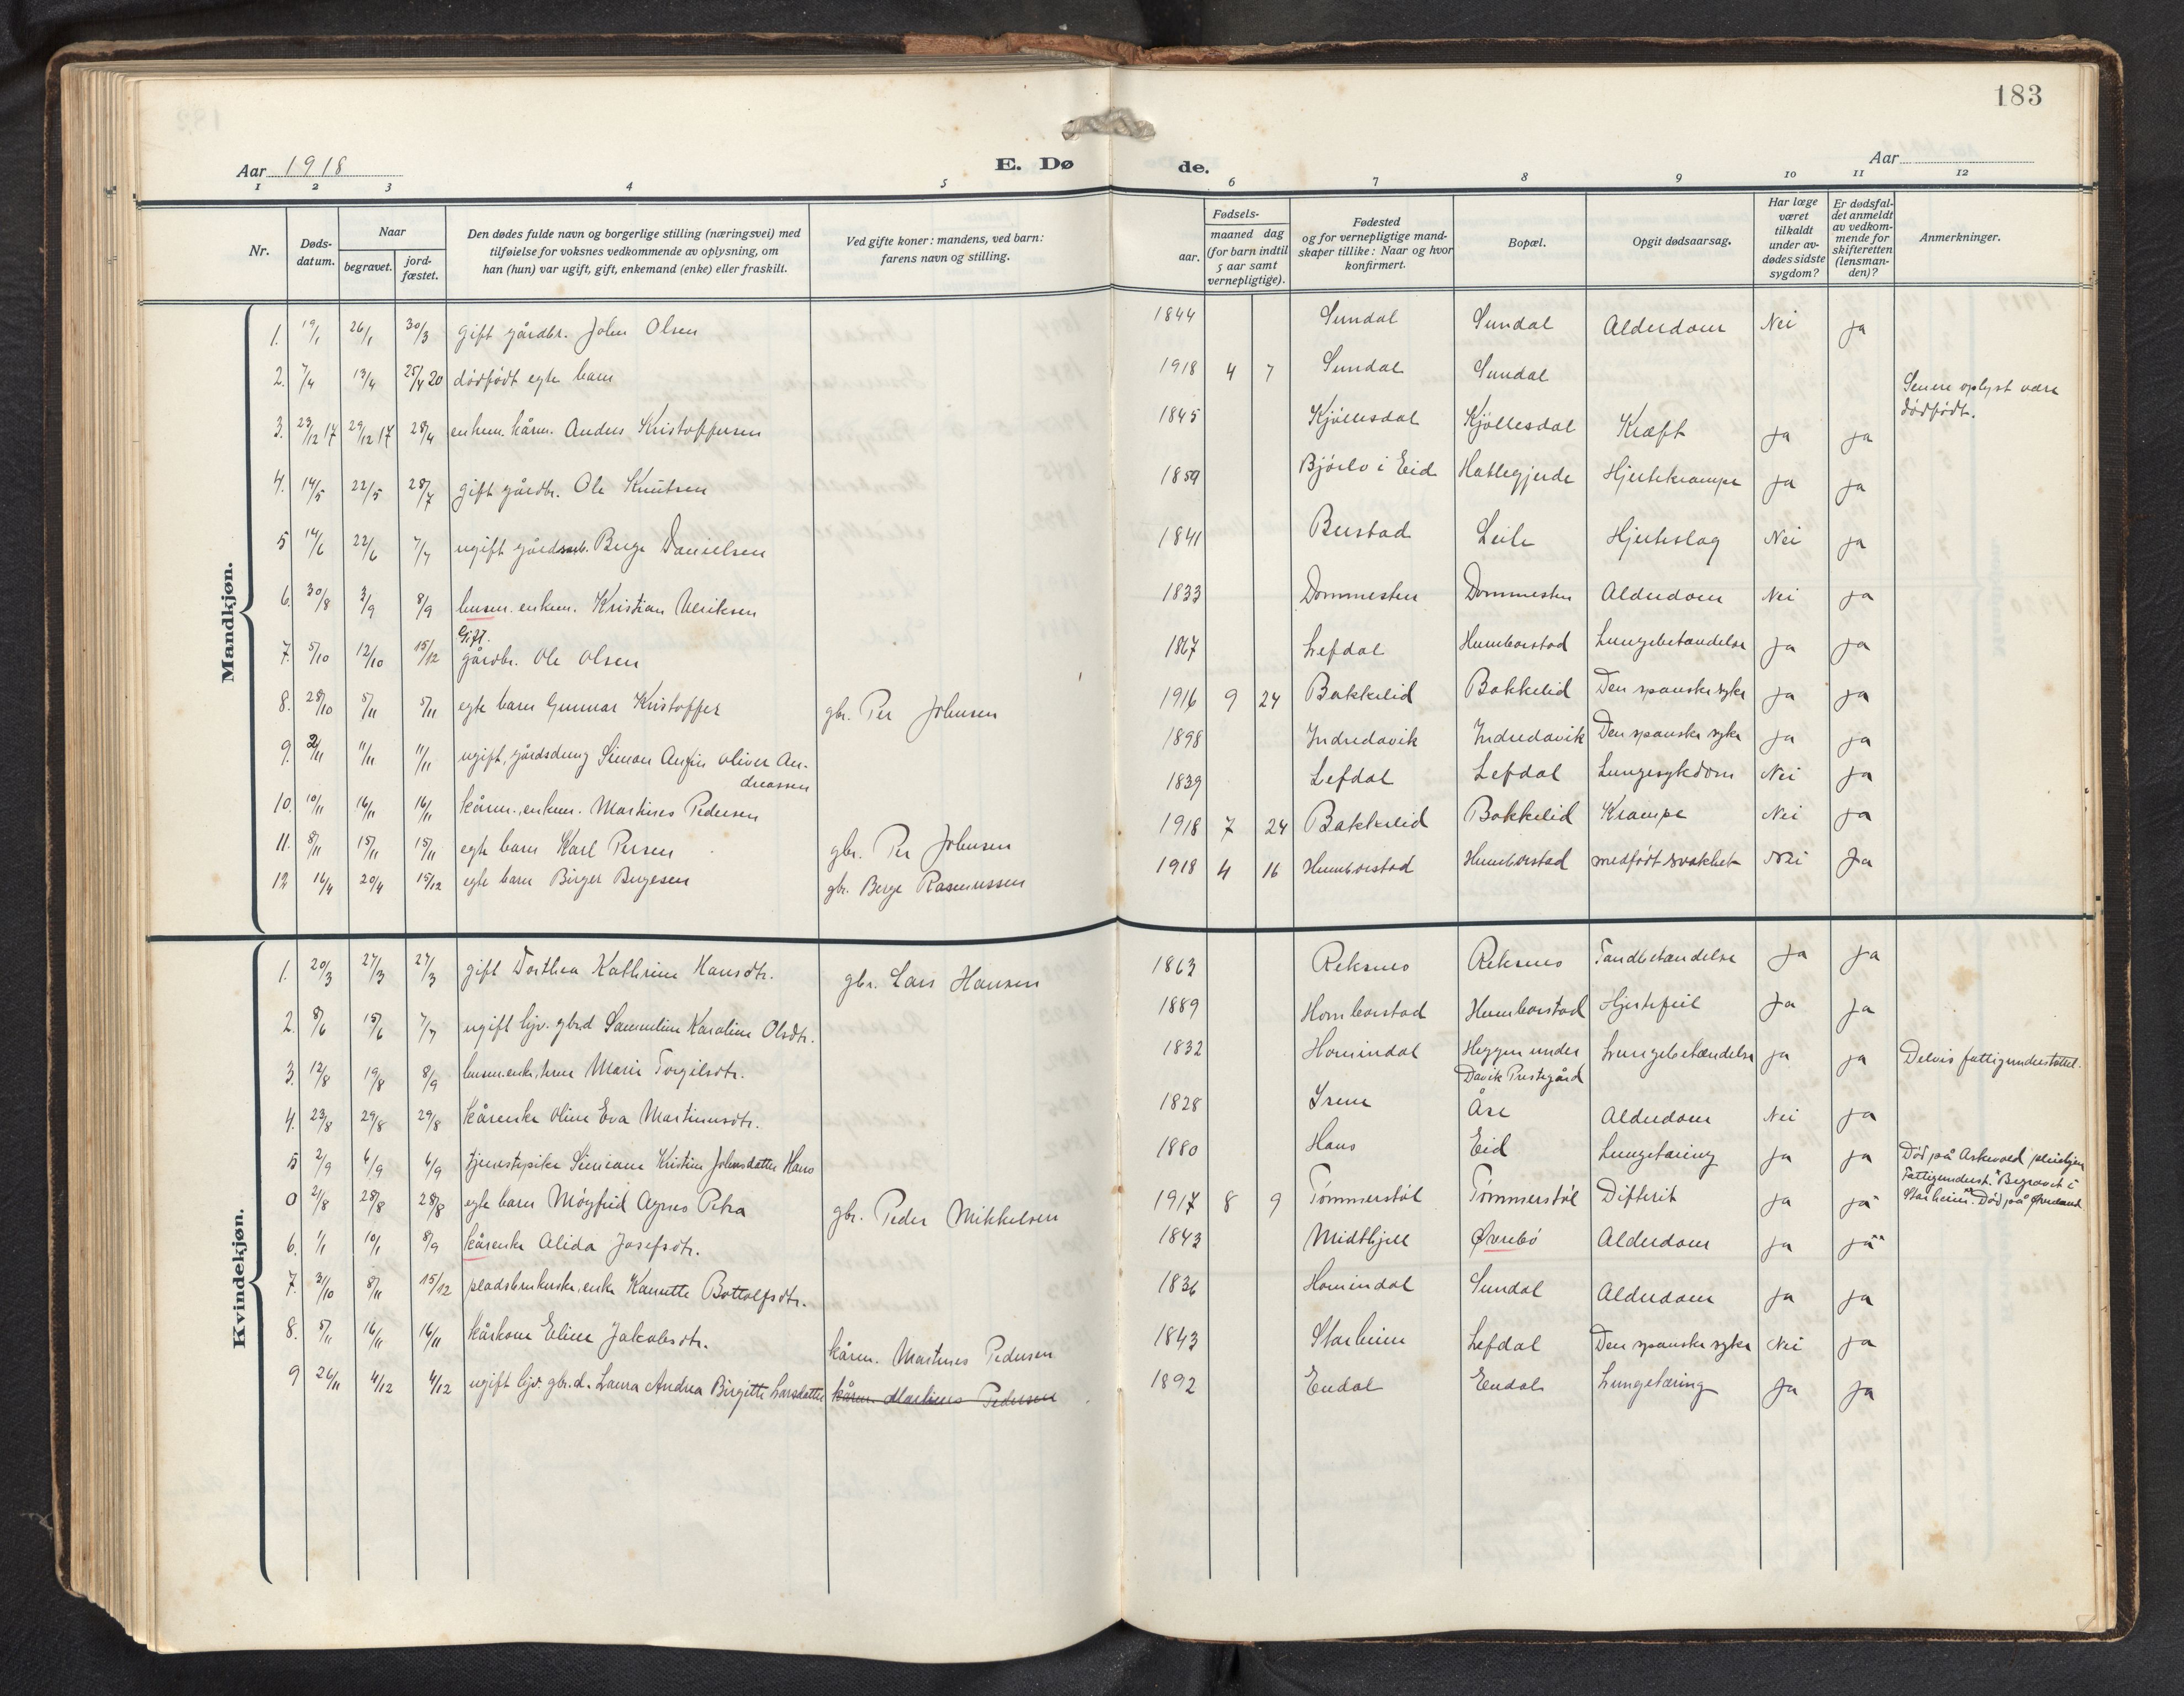 183
Aar 1918
E. Dø de.
Aar
1 2 3 4 5 6 7 8 9 10 11 12
Nr. Døds-datum. Naar begravet. jord-fæstet. Den dødes fulde navn og borgerlige stilling (næringsvei) med tilføielse for voksnes vedkommende av oplysning, om han (hun) var ugift, gift, enkemand (enke) eller fraskilt. Ved gifte koner: mandens, ved barn: farens navn og stilling. Fødsels- aar. maaned dag (for barn indtil 5 aar samt vernepligtige). Fødested og for vernepligtige mandskaper tillike: Naar og hvor konfirmert. Bopæl. Opgit dødsaarsag. Har læge været tilkaldt under avdødes sidste sygdom? Er dødsfaldet anmeldt av vedkommende for skifteretten (lensmanden)? Anmerkninger.
Mandkjøn.
1. 19/1 26/1 30/3 gift gårdbr. John Olsen 1844 Sundal Sundal Alderdom Nei ja
2. 7/4 13/4 25/4 20 dödfödt egte barn 1918 4 7 Sundal Sundal Senere oplyst være dödfödt.
3. 23/12 17 29/12 17 28/4 enkem. kårm. Anders Kristoffersen 1845 Kjöllesdal Kjöllesdal Kræft ja ja
4. 14/5 22/5 28/7 gift gårdbr. Ole Knutsen 1859 Bjórlo i Eid Hatlegjerde Hjertekrampe ja ja
5 14/6 22/6 7/7 ugift gårdsarb. Berge Danielsen 1841 Bustad Leile Hjerteslag Nei ja
6. 30/8 3/9 8/9 husm. enkem. Kristian Ulriksen 1833 Dommesten Dommesten Alderdom Nei ja
7. 5/10 12/10 15/12 Gift. gårdbr. Ole Olsen 1867 Lefdal Humborstad Lungebetændelse ja ja
8. 28/10 5/11 5/11 egte barn Gunnar Kristoffer gbr. Per Johnsen 1916 9 24 Bakkelid Bakkelid Den spanske syke ja ja
9. 2/11 11/11 11/11 ugift, gårdsdreng Simon Oliver Andreassen 1898 Indredavik Indredavik Den spanske syke ja ja
10. 10/11 16/11 16/11 kårm., enkem. Martines Pedersen 1839 Lefdal Lefdal Lungesykdom Nei ja
11. 8/11 15/11 15/11 egte barn Karl Persen gbr. Per Johnsen 1918 7 24 Bakkelid Bakkelid Krampe Nei ja
12 16/4 20/4 15/12 egte barn Birger Bergesen gbr. Berge Rasmussen 1918 4 16 Humborstad Humborstad medfödt svakhet Nei Ja
Kvindekjøn.
1. 20/3 27/3 27/3 gift Dorthea Kathrine Hansdtr. gbr. Lars Hansen 1863 Reksnes Reksnes Tandbetændelse Ja Ja
2. 8/6 15/6 7/7 ugift lijv. gbrd Samueline Karoline Olsdtr. 1889 Homborstad Humborstad Hjertefeil Ja ja
3. 12/8 19/8 8/9 husm.enke, Marie Torgilsdtr. 1832 Hornindal Heggen under Davik Prestegård Lungebetændelse ja ja Delvis fattigunderstøttet.
4. 23/8 29/8 29/8 kårenke Oline Eva Martinusdtr. 1828 Irene Åse Alderdom Nei ja
5 2/9 6/9 6/9 tjenestepike Simione Kristine Johnsdatter Haus 1880 Haus Eid Lungetæring ja ja Död på Askevold pleiehjem
0 21/8 28/8 28/8 egte barn Möyfrid Agnes Petra gbr. Peder Mikkelsen 1917 8 9 Tömmerstöl Tömmerstöl Difterit ja ja Fattigunderst. Begravet i Starheim. Död på
6. 1/1 10/1 8/9 kårenke Alida Josefsdtr. 1843 Midthjell Øvrebö Alderdom ja ja
7. 31/10 8/11 15/12 pladsbrukerske, enke Kanutte Bottolfsdtr. 1836 Hornindal Sundal Alderdom ja ja
8. 5/11 16/11 16/11 kårkone Eline Jakobsdtr. kårm. Martines Pedersen 1843 Starheim Lefdal Den spanske syke Nei ja
9 26/11 4/12 4/12 ugift lijv. gbr.d. Laura Andrea Birgitte Larsdatter kårm. Martines Pedersen 1892 Endal Endal Lungetæring Ja ja